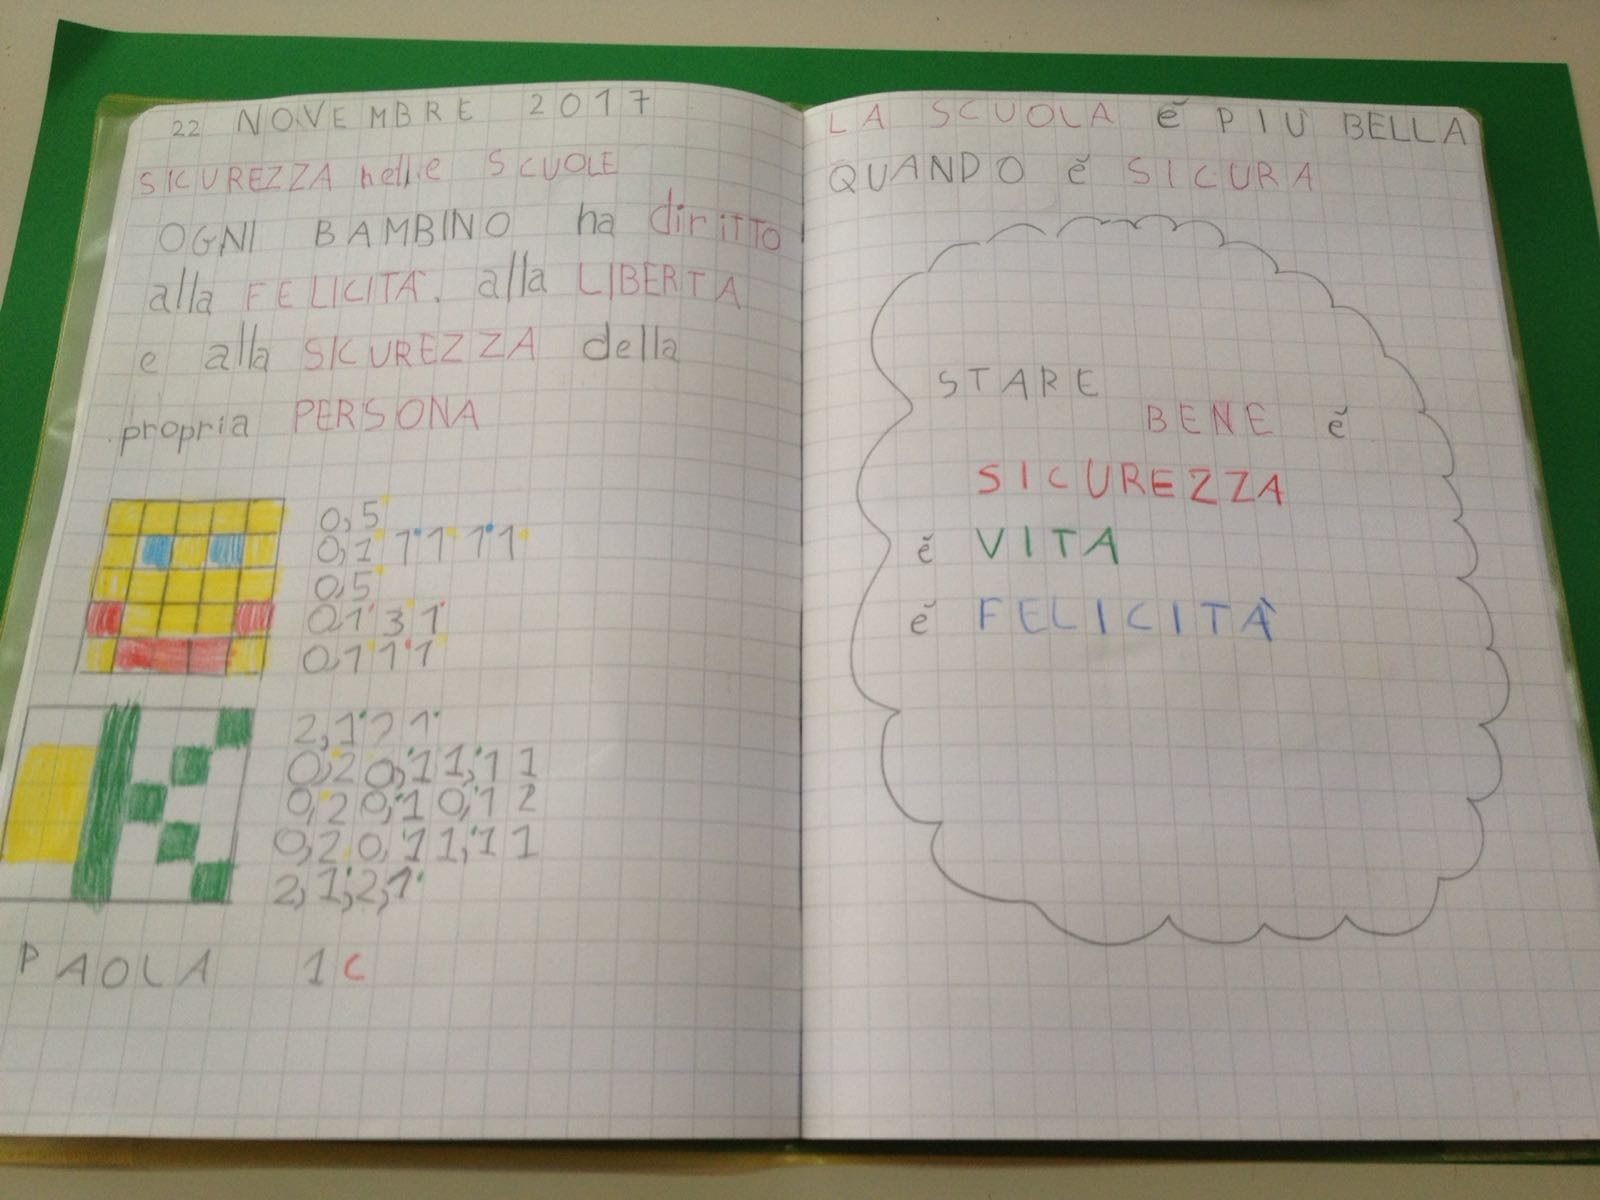 22 NOVEMBRE 2017
SICUREZZA nelle SCUOLE
OGNI BAMBINO ha dirITTO
alla FELICITÀ. alla LIBERTA
e alla SICUREZZA della
propria PERSONA
0,5
0,1 1 1 1 1
0,5
0,1 3 1
0,1 1 1
2,1 2 1
0,2 0,1 1,1 1
0,2 0,1 0,1 2
0,2 0,1 1,1 1
2,1,2,1
PAOLA 1C
LA SCUOLA è PIÙ BELLA
QUANDO è SICURA
STARE
BENE è
SICUREZZA
è VITA
è FELICITÀ